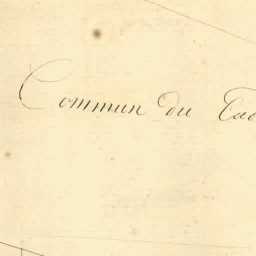 Commun du